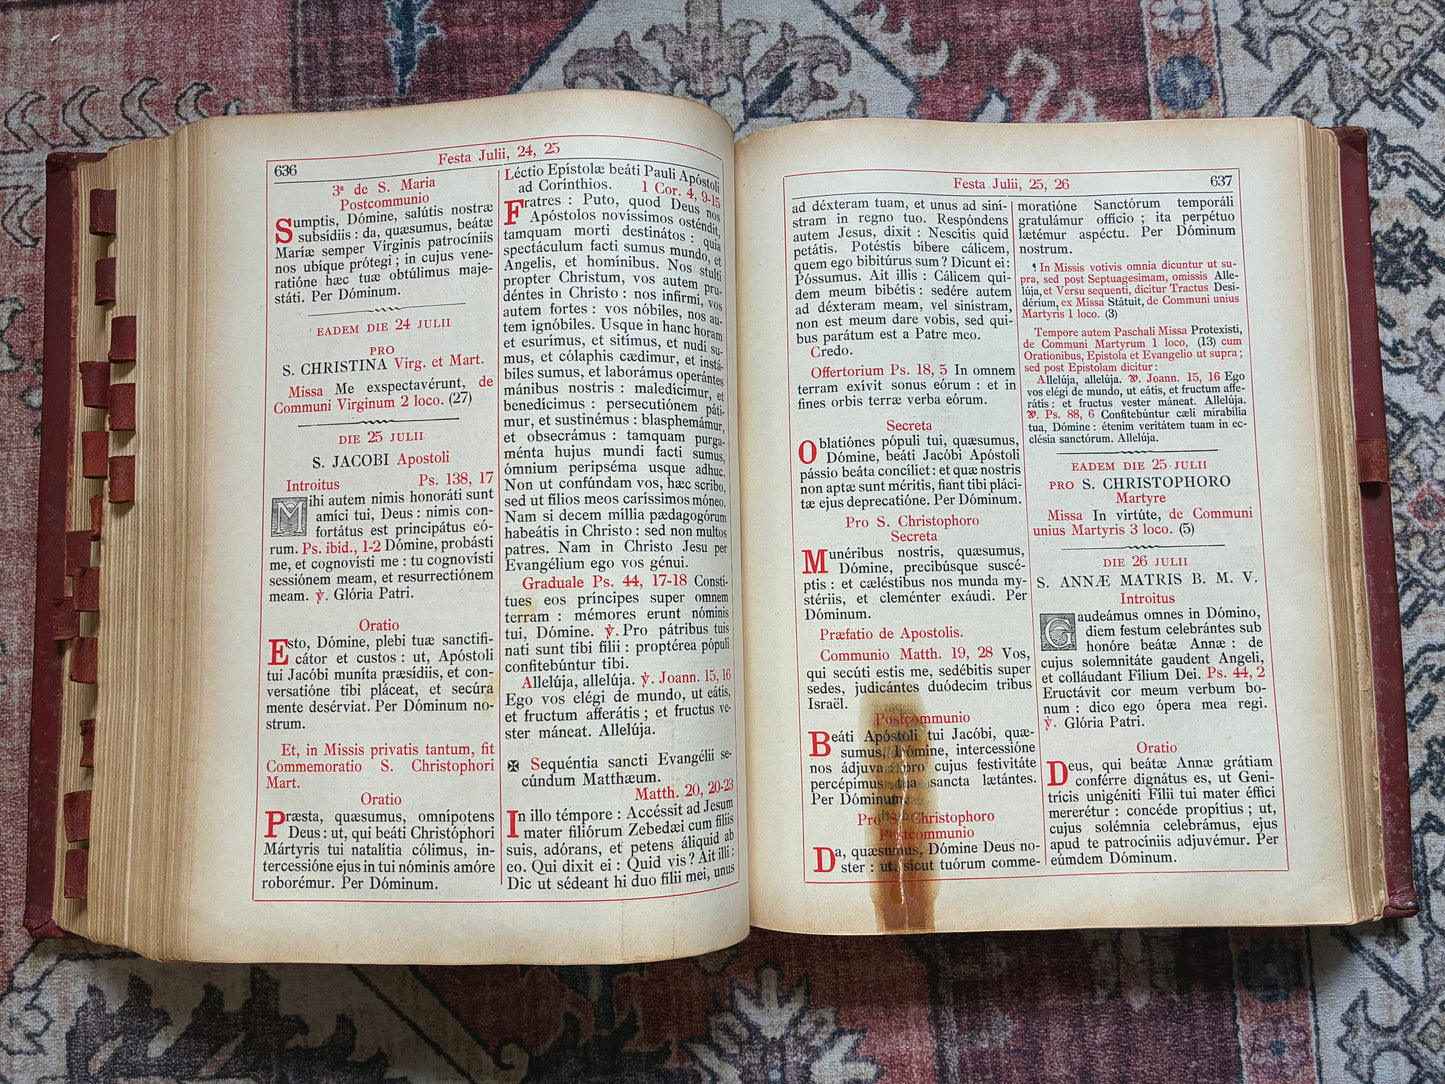 636
Festa Julii, 24, 25
3ª de S. Maria
Postcommunio
Sumptis, Dómine, salútis nostræ
subsídiis : da, quæsumus, beátæ
Maríæ semper Vírginis patrocíniis
nos ubíque prótegi ; in cujus vene-
ratióne hæc tuæ obtúlimus maje-
státi. Per Dóminum.
EADEM DIE 24 JULII
PRO
S. CHRISTINA Virg. et Mart.
Missa Me exspectavérunt, de
Communi Virginum 2 loco. (27)
DIE 25 JULII
S. JACOBI Apostoli
Introitus Ps. 138, 17
Mihi autem nimis honoráti sunt
amíci tui, Deus : nimis con-
fortátus est principátus eó-
rum. Ps. ibid., 1-2 Dómine, probásti
me, et cognovísti me : tu cognovísti
sessiónem meam, et resurrectiónem
meam. ℣. Glória Patri.
Oratio
Esto, Dómine, plebi tuæ sanctifi-
cátor et custos : ut, Apóstoli
tui Jacóbi muníta præsídiis, et con-
versatióne tibi pláceat, et secúra
mente desérviat. Per Dóminum no-
strum.
Et, in Missis privatis tantum, fit
Commemoratio S. Christophori
Mart.
Oratio
Præsta, quæsumus, omnípotens
Deus : ut, qui beáti Christóphori
Mártyris tui natalítia cólimus, in-
tercessióne ejus in tui nóminis amóre
roborémur. Per Dóminum.
Léctio Epístolæ beáti Pauli Apóstoli
ad Corínthios. 1 Cor. 4, 9-15
Fratres : Puto, quod Deus nos
Apóstolos novíssimos osténdit,
tamquam morti destinátos : quia
spectáculum facti sumus mundo, et
Angelis, et homínibus. Nos stulti
propter Christum, vos autem pru-
déntes in Christo : nos infírmi, vos
autem fortes : vos nóbiles, nos au-
tem ignóbiles. Usque in hanc horam
et esurímus, et sitímus, et nudi su-
mus, et cólaphis cædimur, et instá-
biles sumus, et laborámus operántes
mánibus nostris : maledícimur, et
benedícimus : persecutiónem páti-
mur, et sustinémus : blasphemámur,
et obsecrámus : tamquam purga-
ménta hujus mundi facti sumus,
ómnium peripséma usque adhuc.
Non ut confúndam vos, hæc scribo,
sed ut fílios meos caríssimos móneo.
Nam si decem míllia pædagogórum
habeátis in Christo : sed non multos
patres. Nam in Christo Jesu per
Evangélium ego vos génui.
Graduale Ps. 44, 17-18 Consti-
tues eos príncipes super omnem
terram : mémores erunt nóminis
tui, Dómine. ℣. Pro pátribus tuis
nati sunt tibi fílii : proptérea pópuli
confitebúntur tibi.
Allelúja, allelúja. ℣. Joann. 15, 16
Ego vos elégi de mundo, ut eátis,
et fructum afferátis ; et fructus ve-
ster máneat. Allelúja.
✠ Sequéntia sancti Evangélii se-
cúndum Matthæum.
Matth. 20, 20-23
In illo témpore : Accéssit ad Jesum
mater filiórum Zebedæi cum fíliis
suis, adórans, et petens áliquid ab
eo. Qui dixit ei : Quid vis ? Ait illi :
Dic ut sédeant hi duo fílii mei, unus
Festa Julii, 25, 26
637
ad déxteram tuam, et unus ad siní-
stram in regno tuo. Respóndens
autem Jesus, dixit : Nescítis quid
petátis. Potéstis bíbere cálicem,
quem ego bibitúrus sum ? Dicunt ei :
Póssumus. Ait illis : Cálicem qui-
dem meum bibétis : sedére autem
ad déxteram meam, vel sinístram,
non est meum dare vobis, sed qui-
bus parátum est a Patre meo.
Credo.
Offertorium Ps. 18, 5 In omnem
terram exívit sonus eórum : et in
fines orbis terræ verba eórum.
Secreta
Oblatiónes pópuli tui, quæsumus,
Dómine, beáti Jacóbi Apóstoli
pássio beáta concíliet : et quæ nostris
non aptæ sunt méritis, fiant tibi pláci-
tæ ejus deprecatióne. Per Dóminum.
Pro S. Christophoro
Secreta
Munéribus nostris, quæsumus,
Dómine, precibúsque suscé-
ptis : et cæléstibus nos munda my-
stériis, et cleménter exáudi. Per
Dóminum.
Præfatio de Apostolis.
Communio Matth. 19, 28 Vos,
qui secúti estis me, sedébitis super
sedes, judicántes duódecim tribus
Israël.
Postcommunio
Beáti Apóstoli tui Jacóbi, quæ-
sumus, Dómine, intercessióne
nos ádjuva : pro cujus festivitáte
percépimus tua sancta lætántes.
Per Dóminum.
Pro S. Christophoro
Postcommunio
Da, quæsumus, Dómine Deus no-
ster : ut, sicut tuórum comme-
moratióne Sanctórum temporáli
gratulámur offício ; ita perpétuo
lætémur aspéctu. Per Dóminum
nostrum.
¶ In Missis votivis omnia dicuntur ut su-
pra, sed post Septuagesimam, omissis Alle-
lúja, et Versu sequenti, dicitur Tractus Desi-
dérium, ex Missa Státuit, de Communi unius
Martyris 1 loco. (3)
Tempore autem Paschali Missa Protexísti,
de Communi Martyrum 1 loco, (13) cum
Orationibus, Epistola et Evangelio ut supra ;
sed post Epistolam dicitur :
Allelúja, allelúja. ℣. Joann. 15, 16 Ego
vos elégi de mundo, ut eátis, et fructum affe-
rátis : et fructus vester máneat. Allelúja.
℣. Ps. 88, 6 Confitebúntur cæli mirabília
tua, Dómine : étenim veritátem tuam in ec-
clésia sanctórum. Allelúja.
EADEM DIE 25 JULII
PRO S. CHRISTOPHORO
Martyre
Missa In virtúte, de Communi
unius Martyris 3 loco. (5)
DIE 26 JULII
S. ANNÆ MATRIS B. M. V.
Introitus
Gaudeámus omnes in Dómino,
diem festum celebrántes sub
honóre beátæ Annæ : de
cujus solemnitáte gaudent Angeli,
et colláudant Fílium Dei. Ps. 44, 2
Eructávit cor meum verbum bo-
num : dico ego ópera mea regi.
℣. Glória Patri.
Oratio
Deus, qui beátæ Annæ grátiam
conférre dignátus es, ut Geni-
trícis unigéniti Fílii tui mater éffici
mererétur : concéde propítius ; ut,
cujus solémnia celebrámus, ejus
apud te patrocíniis adjuvémur. Per
eúmdem Dóminum.